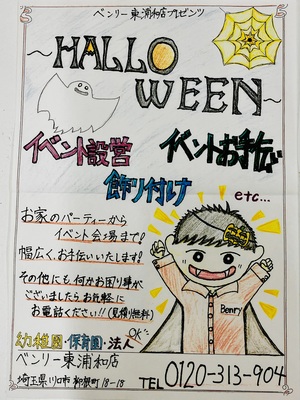 ベンリー東浦和店プレゼンツ
~HALLO
WEEN~
イベント設営
イベントお手伝い
飾り付け
etc...
お家のパーティーから
イベント会場まで!
幅広く、お手伝いいたします!
その他にも何かお困り事が
ございましたらお気軽に
お電話ください!!(見積り無料)
Benry
幼稚園・保育園・法人
OK!
ベンリー東浦和店
埼玉県川口市柳崎町18-18
TEL 0120-313-904